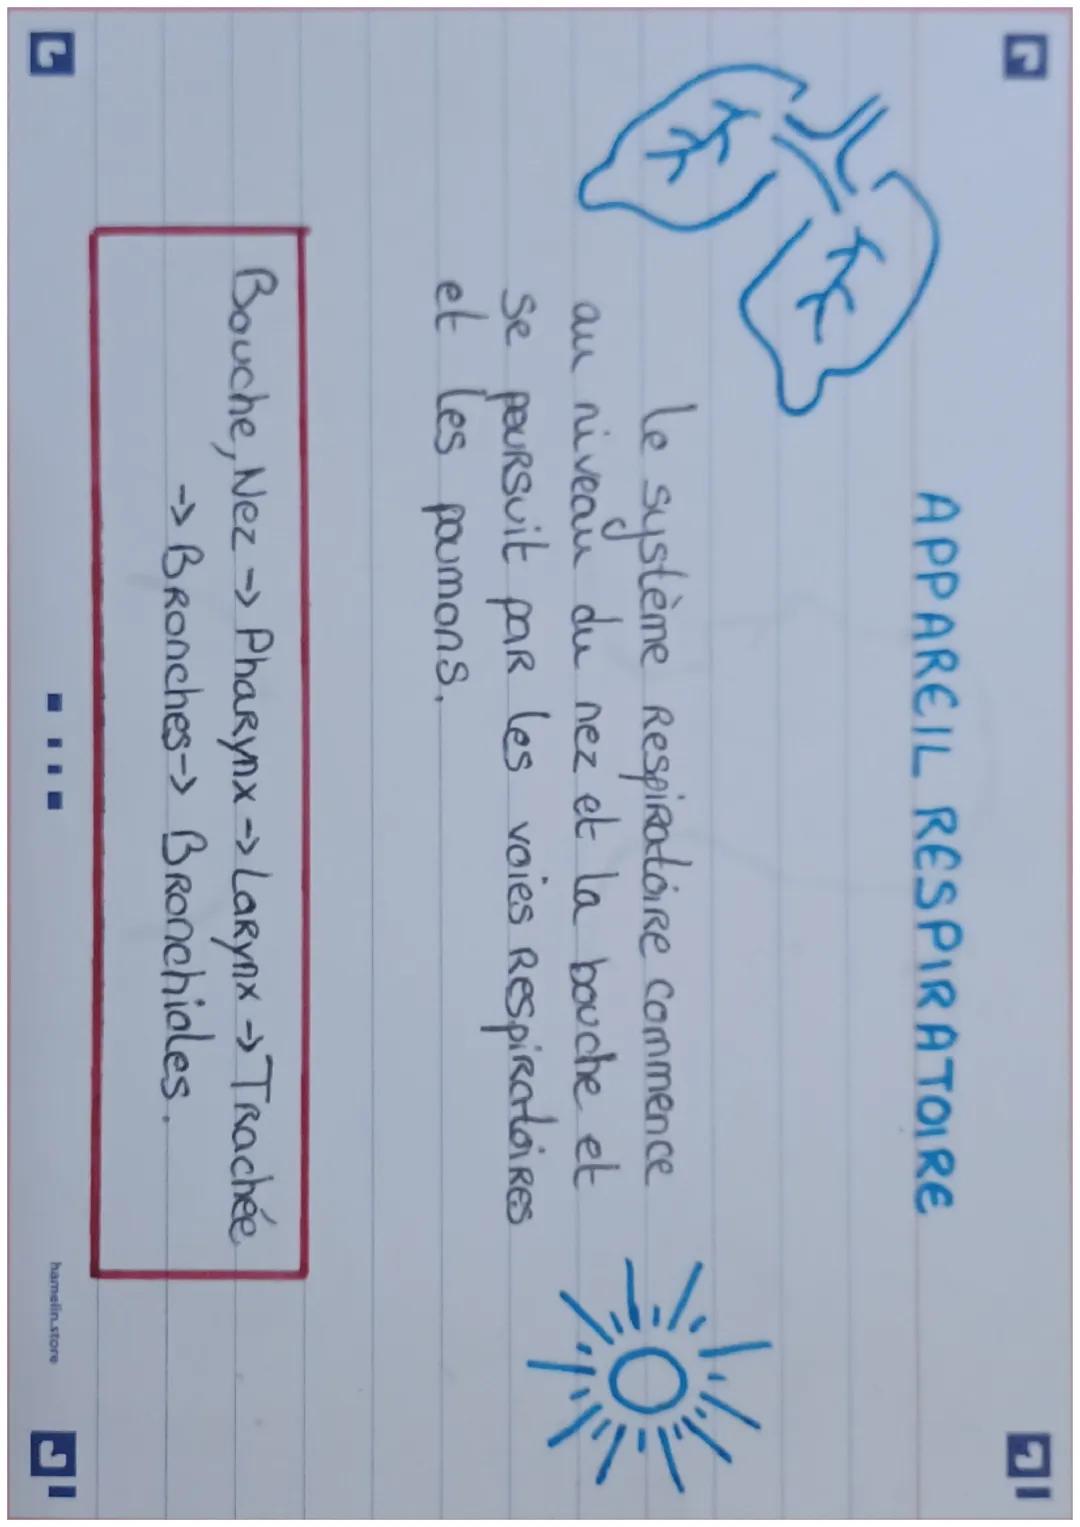 APPAREIL RESPIRATOIRE
Le système respiratoire commence
au niveau du nez et la bouche et
se poursuit par les voies respiratoires
et les poumons.
Bouche, Nez -> Pharynx -> Larynx -> Trachée
-> Bronches -> Bronchioles.
hamelin.store